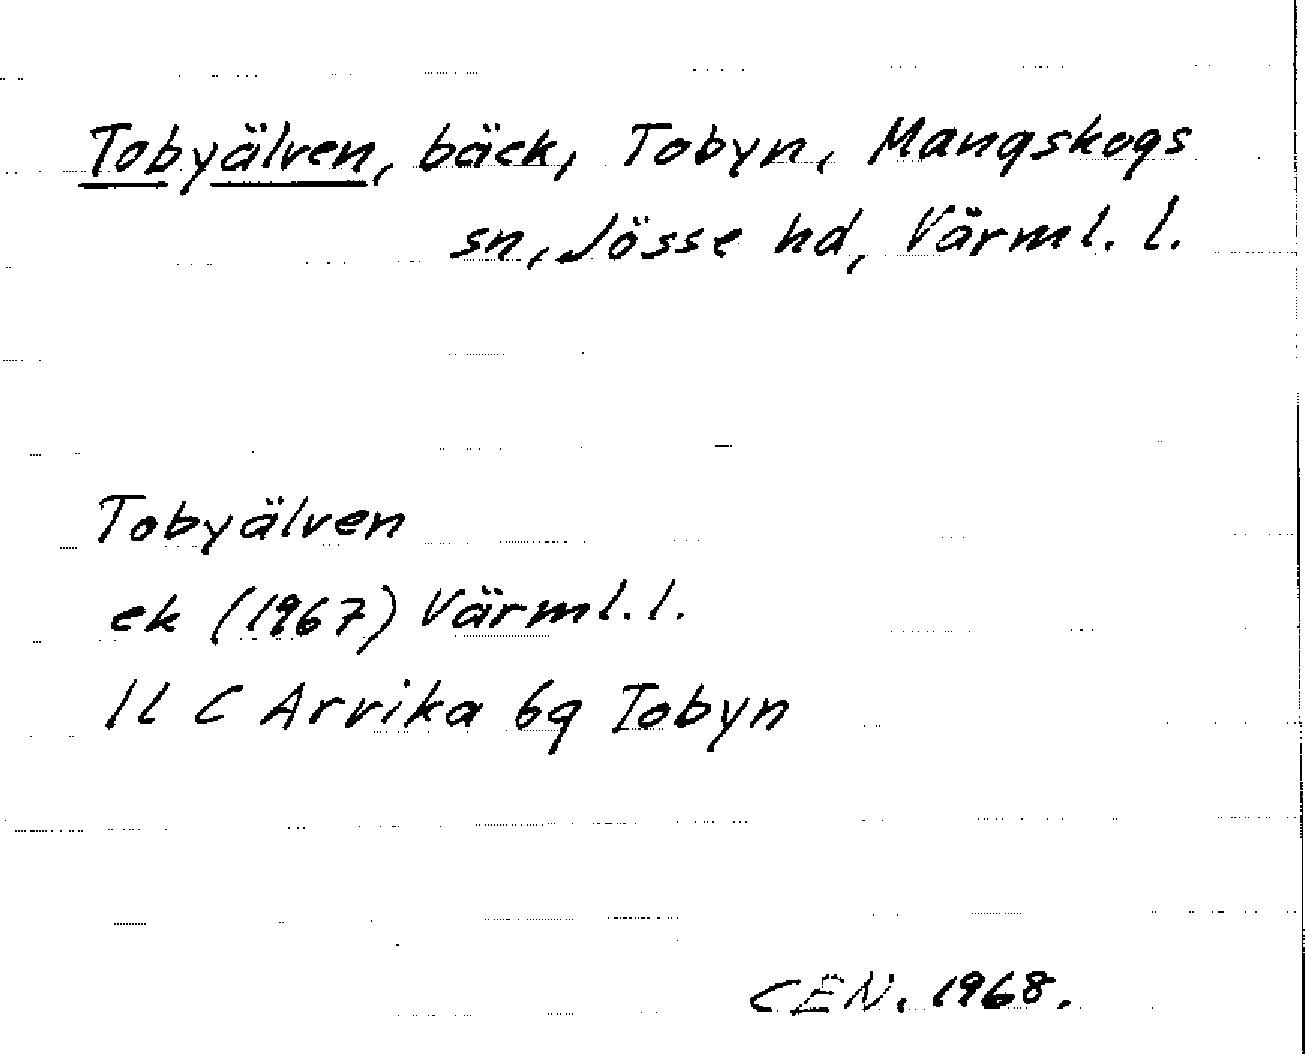 Tobyälven, bäck, Tobyn, Mangskogs
sn, Jösse hd, Värml. l.
Tobyälven
ek (1967) Värml. l.
11 C Arvika 6g Tobyn
CEN. 1968.